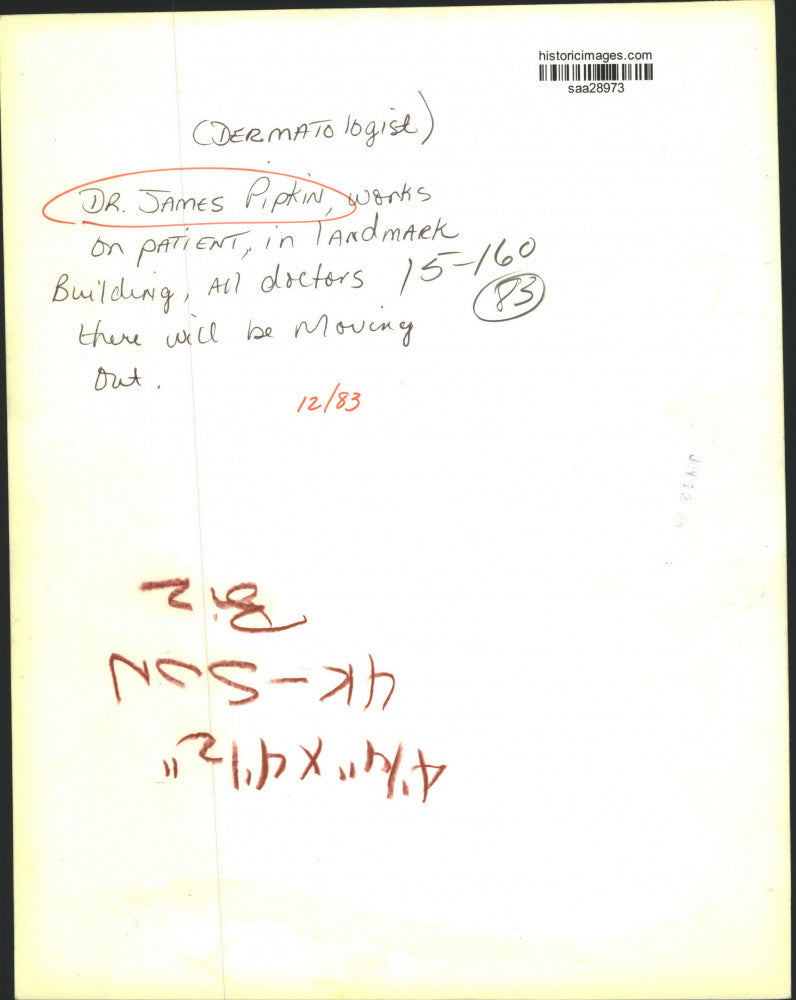 historicimages.com
saa28973
(DERMATologist)
DR. JAMES PIPKIN, works
on PATIENT, in lANdMARK
Building, All doctors 15-160
83
there will be Moving
Out.
12/83
4 1/4" X 4 1/2"
4K-SUN
Biz